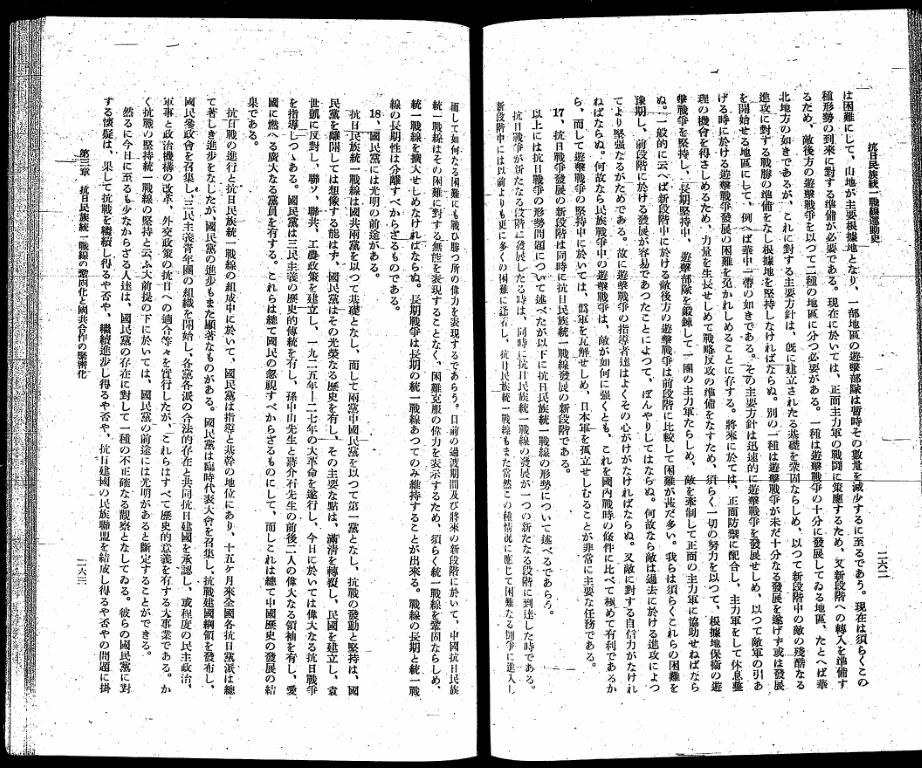 抗日民族統一戰線運動史
二六二
は困難にして、山地が主要根據地となり、一部地區の遊擊部隊は暫時その數量を減少するに至るであらう。現在は須らくこの
種形勢の到來に對する準備が必要である。現在に於いては、正面主力軍の戰鬪に策應するため、又新段階への轉入を準備す
るため、敵後方の遊擊戰爭を以つて二種の地區に分つ必要がある。一種は遊擊戰爭の十分に發展してゐる地區、たとへば華
北地方の如きであるが、これに對する主要方針は、既に建立されたる基礎を鞏固ならしめ、以つて新段階中の敵の殘酷なる
進攻に對する戰勝の準備をなし根據地を堅持しなければならぬ。別の一種は遊擊戰爭が未だ十分なる發展を遂げず或は發展
を開始せる地區にして、例へば華中一帶の如きである。その主要方針は迅速的に遊擊戰爭を發展せしめ、以つて敵軍の引あ
げる時に於ける遊擊戰爭發展の困難を免かれしめることに存する。將來に於ては、正面防禦に配合し、主力軍をして休息整
理の機會を得さしめるため、力量を生長せしめて戰略反攻の準備をなすため、須らく一切の努力を以つて、根據地保衞の遊
擊戰爭を堅持し、長期堅持中、遊擊部隊を鍛鍊して一團の主力軍たらしめ、敵を牽制して正面の主力軍に協助せねばなら
ぬ。一般的に云へば新段階中に於ける敵後方の遊擊戰爭は前段階に比較して困難が甚だ多い。我らは須らくこれらの困難を
豫期し、前段階に於ける發展が容易であつたことによつて、ぼんやりしてはならぬ。何故なら敵は過去に於ける進攻によつ
てより堅强なるがためである。故に遊擊戰爭の指導者達はよくその心がけがなければならぬ。又敵に對する自信力がなけれ
ねばならぬ。何故なら民族戰爭中の遊擊戰爭は、敵が如何に强くとも、これを國內戰時の條件に比べて極めて有利であるか
ら、而して遊擊戰爭の堅持中に於いては、僞軍を瓦解せしめ、日本軍を孤立せしむることが非常に主要な任務である。
17、抗日戰爭發展の新段階は同時に抗日民族統一戰線發展の新段階である。
以上には抗日戰爭の形勢問題について述べたが以下に抗日民族統一戰線の形勢について述べるであらう。
抗日戰爭が新たなる段階に發展したる時は、同時に抗日民族統一戰線の發展が一つの新たなる段階に到達した時である。
新段階中には以前よりも更に多くの困難に逢着し、抗日民族統一戰線もまた當然この種情況に應じて困難なる鬪爭に進入し
進して如何なる困難にも戰ひ勝つ所の偉力を表現するであらう。目前の過渡期間及び將來の新段階に於いて、中國抗日民族
統一戰線はその困難に對する無能を表現することなく、困難克服の偉力を表示するため、須らく統一戰線を鞏固ならしめ、
統一戰線を擴大せしめなければならぬ。長期戰爭は長期の統一戰線あつてのみ維持することが出來る。戰線の長期と統一戰
線の長期性は分離すべからざるものである。
18、國民黨には光明の前途がある。
抗日民族統一戰線は國共兩黨を以つて基礎となし、而して兩黨中國民黨を以つて第一黨となし、抗戰の發動と堅持は、國
民黨を離開しては想像する能はず。國民黨はその光榮なる歷史を有し、その主要な點は、滿淸を轉覆し、民國を建立し、袁
世凱に反對し、聯ソ、聯共、工農政策を建立し、一九二五年—二七年の大革命を遂行し、今日に於いては偉大なる抗日戰爭
を指導しつゝある。國民黨は三民主義の歷史的傳統を有し、孫中山先生と蔣介石先生の前後二人の偉大なる領袖を有し、愛
國に燃へる廣大なる黨員を有する。これらは總て國民の忽視すべからざるものにして、而しこれは總て中國歷史の發展の結
果である。
抗日戰の進行と抗日民族統一戰線の組成中に於いて、國民黨は指導と基幹の地位にあり、十五ケ月來全國各抗日黨派は總
て著しき進步をなしたが、國民黨の進步もまた顯著なものがある。國民黨は臨時代表大會を召集し、抗戰建國綱領を發布し、
國民參政會を召集し、三民主義青年團の組織を開始し、各黨各派の合法的存在と共同抗日建國を承認し、或程度の民主政治、
軍事と政治機構の改革、外交政策の抗日への適合等々を實行したが、これらはすべて歷史的意義を有する大事業である。か
く抗戰の堅持統一戰線の堅持と云ふ大前提の下に於いては、國民黨の前途には光明があると斷定することができる。
然るに今日に至るも少なからざる人達は、國民黨の存在に對して一種の不正確なる觀察となしてゐる。彼らの國民黨に對
する懷疑は、果して抗戰を繼續し得るや否や、繼續進步し得るや否や、抗日建國の民族聯盟を結成し得るや否やの問題に掛
第三章 抗日民族統一戰線の鞏固化と國共合作の緊密化
二六三